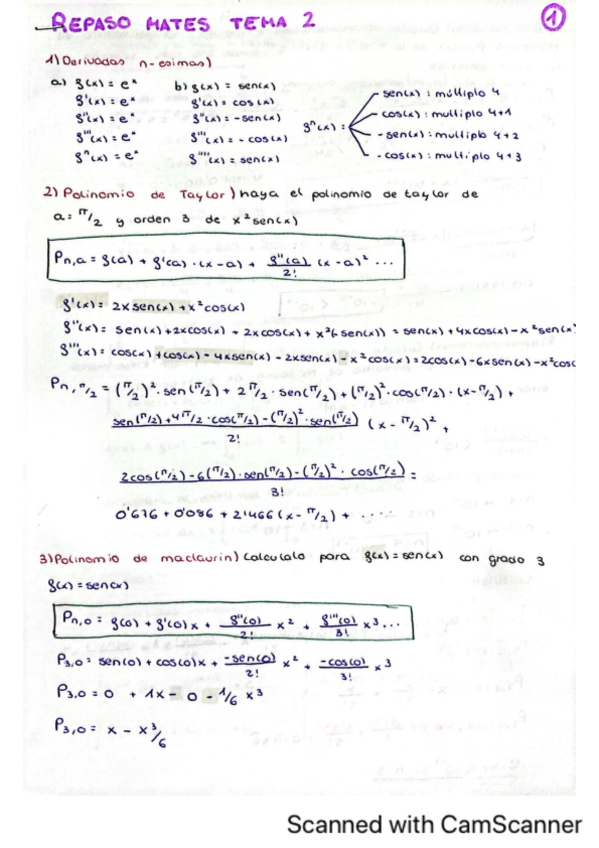 REPASO MATES TEMA 2
1
1) Derivadas n-esimas)
a) f(x) = eˣ b) f(x) = sen(x)
f'(x) = eˣ f'(x) = cos(x)
f''(x) = eˣ f''(x) = -sen(x)
f'''(x) = eˣ f'''(x) = -cos(x)
fⁿ(x) = eˣ f''''(x) = sen(x)
fⁿ(x) =
sen(x) : múltiplo 4
cos(x) : múltiplo 4+1
-sen(x) : múltiplo 4+2
-cos(x) : múltiplo 4+3
2) Polinomio de Taylor) haya el polinomio de taylor de
a = π/2 y orden 3 de x² sen(x)
Pn,a = f(a) + f'(a) · (x-a) + f''(a)/2! (x-a)² ...
f'(x) = 2x sen(x) + x² cos(x)
f''(x) = sen(x) + 2x cos(x) + 2x cos(x) + x²(-sen(x)) = sen(x) + 4x cos(x) - x² sen(x)
f'''(x) = cos(x) + cos(x) - 4x sen(x) - 2x sen(x) - x² cos(x) = 2cos(x) - 6x sen(x) - x² cos(
Pn,π/2 = (π/2)² · sen(π/2) + 2π/2 · sen(π/2) + (π/2)² · cos(π/2) · (x-π/2) +
sen(π/2) + 4π/2 · cos(π/2) - (π/2)² · sen(π/2) / 2! (x - π/2)² +
2cos(π/2) - 6(π/2) · sen(π/2) - (π/2)² · cos(π/2) / 3! =
0'676 + 0'086 + 2'1466 (x - π/2) + ·····
3) Polinomio de maclaurin) Calculalo para f(x) = sen(x) con grado 3
f(x) = sen(x)
Pn,0 = f(0) + f'(0)x + f''(0)/2! x² + f'''(0)/3! x³ ...
P3,0 = sen(0) + cos(0)x + -sen(0)/2! x² + -cos(0)/3! x³
P3,0 = 0 + 1x - 0 - 1/6 x³
P3,0 = x - x³/6
Scanned with CamScanner